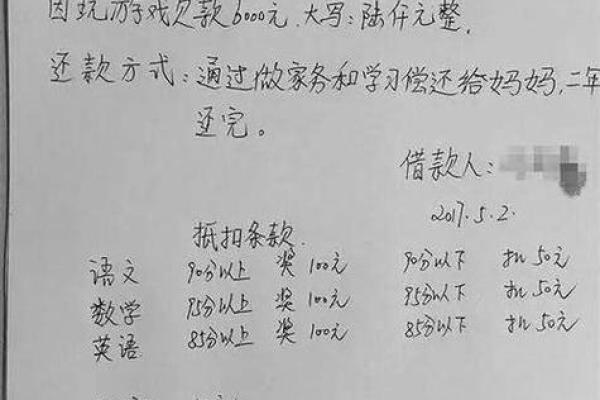 因玩游戏欠款6000元.大写:陆仟元整.
还款方式:通过做家务和学习偿还给妈妈,二年
还完。
借款人:
2017.5.2.
抵扣条款.
语文 90分以上 奖 100元 90分以下 扣 50元
数学 95分以上 奖 100元 95分以下 扣 50元
英语 85分以上 奖 100元 85分以下 扣 50元